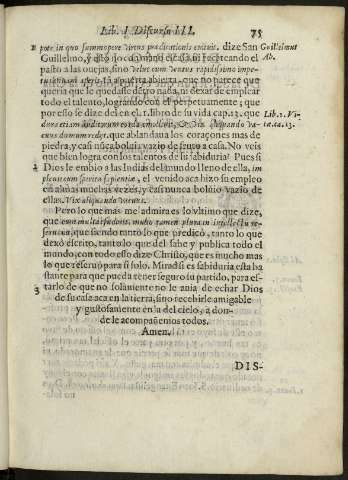 Lib. I. Discurso III. 75
pote in quo summopere virtus prædicationis enituit. dize San Guillelmus
Guillelmo, y esto no como quiera recreando el Ab.
pasto a las ouejas, sino velut cum ventus rapidissimo impe-
tu, a puerta abierta, que no parece que
queria que le quedasse dentro nada, ni dexar de emplear
todo el talento, logrando con el perpetuamente; que
por esso se dize del en el. 1. libro de su vida cap.12. que Lib.1. Vi-
dura etiam emolliuit, & Vix aliquando va- tæ.ca.13.
cuus domum redijt. que ablandaua los coraçones mas de
piedra, y casi nũca boluia vazio de fruto a casa. No veis
que bien logra con los talentos de su sabiduria? Pues si
Dios le embio a las Indias del mundo lleno de ella, im
pleuit eum spiritu sapientiæ, el venido aca hizo su empleo
en almas muchas vezes, y casi nunca boluio vazio de
ellas. Vix aliquando vacuus.
Pero lo que mas me admira es lo vltimo que dize,
que cum multa effuderit, multo tamen plura in intellectu re-
seruauit, que siendo tanto lo que predicò, tanto lo que
dexó escrito, tanto lo que del sabe y publica todo el
mundo, con todo esso dize Christo, que es mucho mas
lo que reseruó para si solo. Mirad si es sabiduria esta ba
stante para que pueda tener seguro su partido, para es-
3 tarlo de que no solamente no le aura de echar Dios
de su casa aca en la tierra, sino recebirle amigable
y gustosamente en la del cielo, a don-
de le acompañemos todos.
Amen.
DIS-